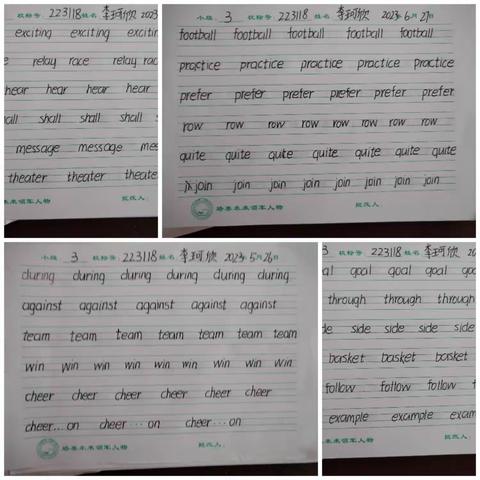 校给号 223118 姓名 李珂欣 2023
exciting exciting exciti
e relay race relay rac
hear hear hear hear
all shall shall shall s
message message mes
theater theater theate
未来领军人物 批改人:
小组 3 校给号 223118 姓名 李珂欣 2023年6月27日
football football football football football
practice practice practice practice practice
prefer prefer prefer prefer prefer prefer
row row row row row row row
quite quite quite quite quite quite quite
join join join join join join join
培养未来领军人物 批改人:
小组 3 校给号 223118 姓名 李珂欣 2023年5月26日
during during during during during during
against against against against against
team team team team team team team
win win win win win win win win
cheer cheer cheer cheer cheer cheer
cheer...on cheer...on cheer...on
培养未来领军人物 批改人:
3 校给号 223118 姓名 李珂欣 20
al goal goal goal goa
through through through
de side side side side
basket basket basket
follow follow follow f
example example exam
来领军人物 批改人: